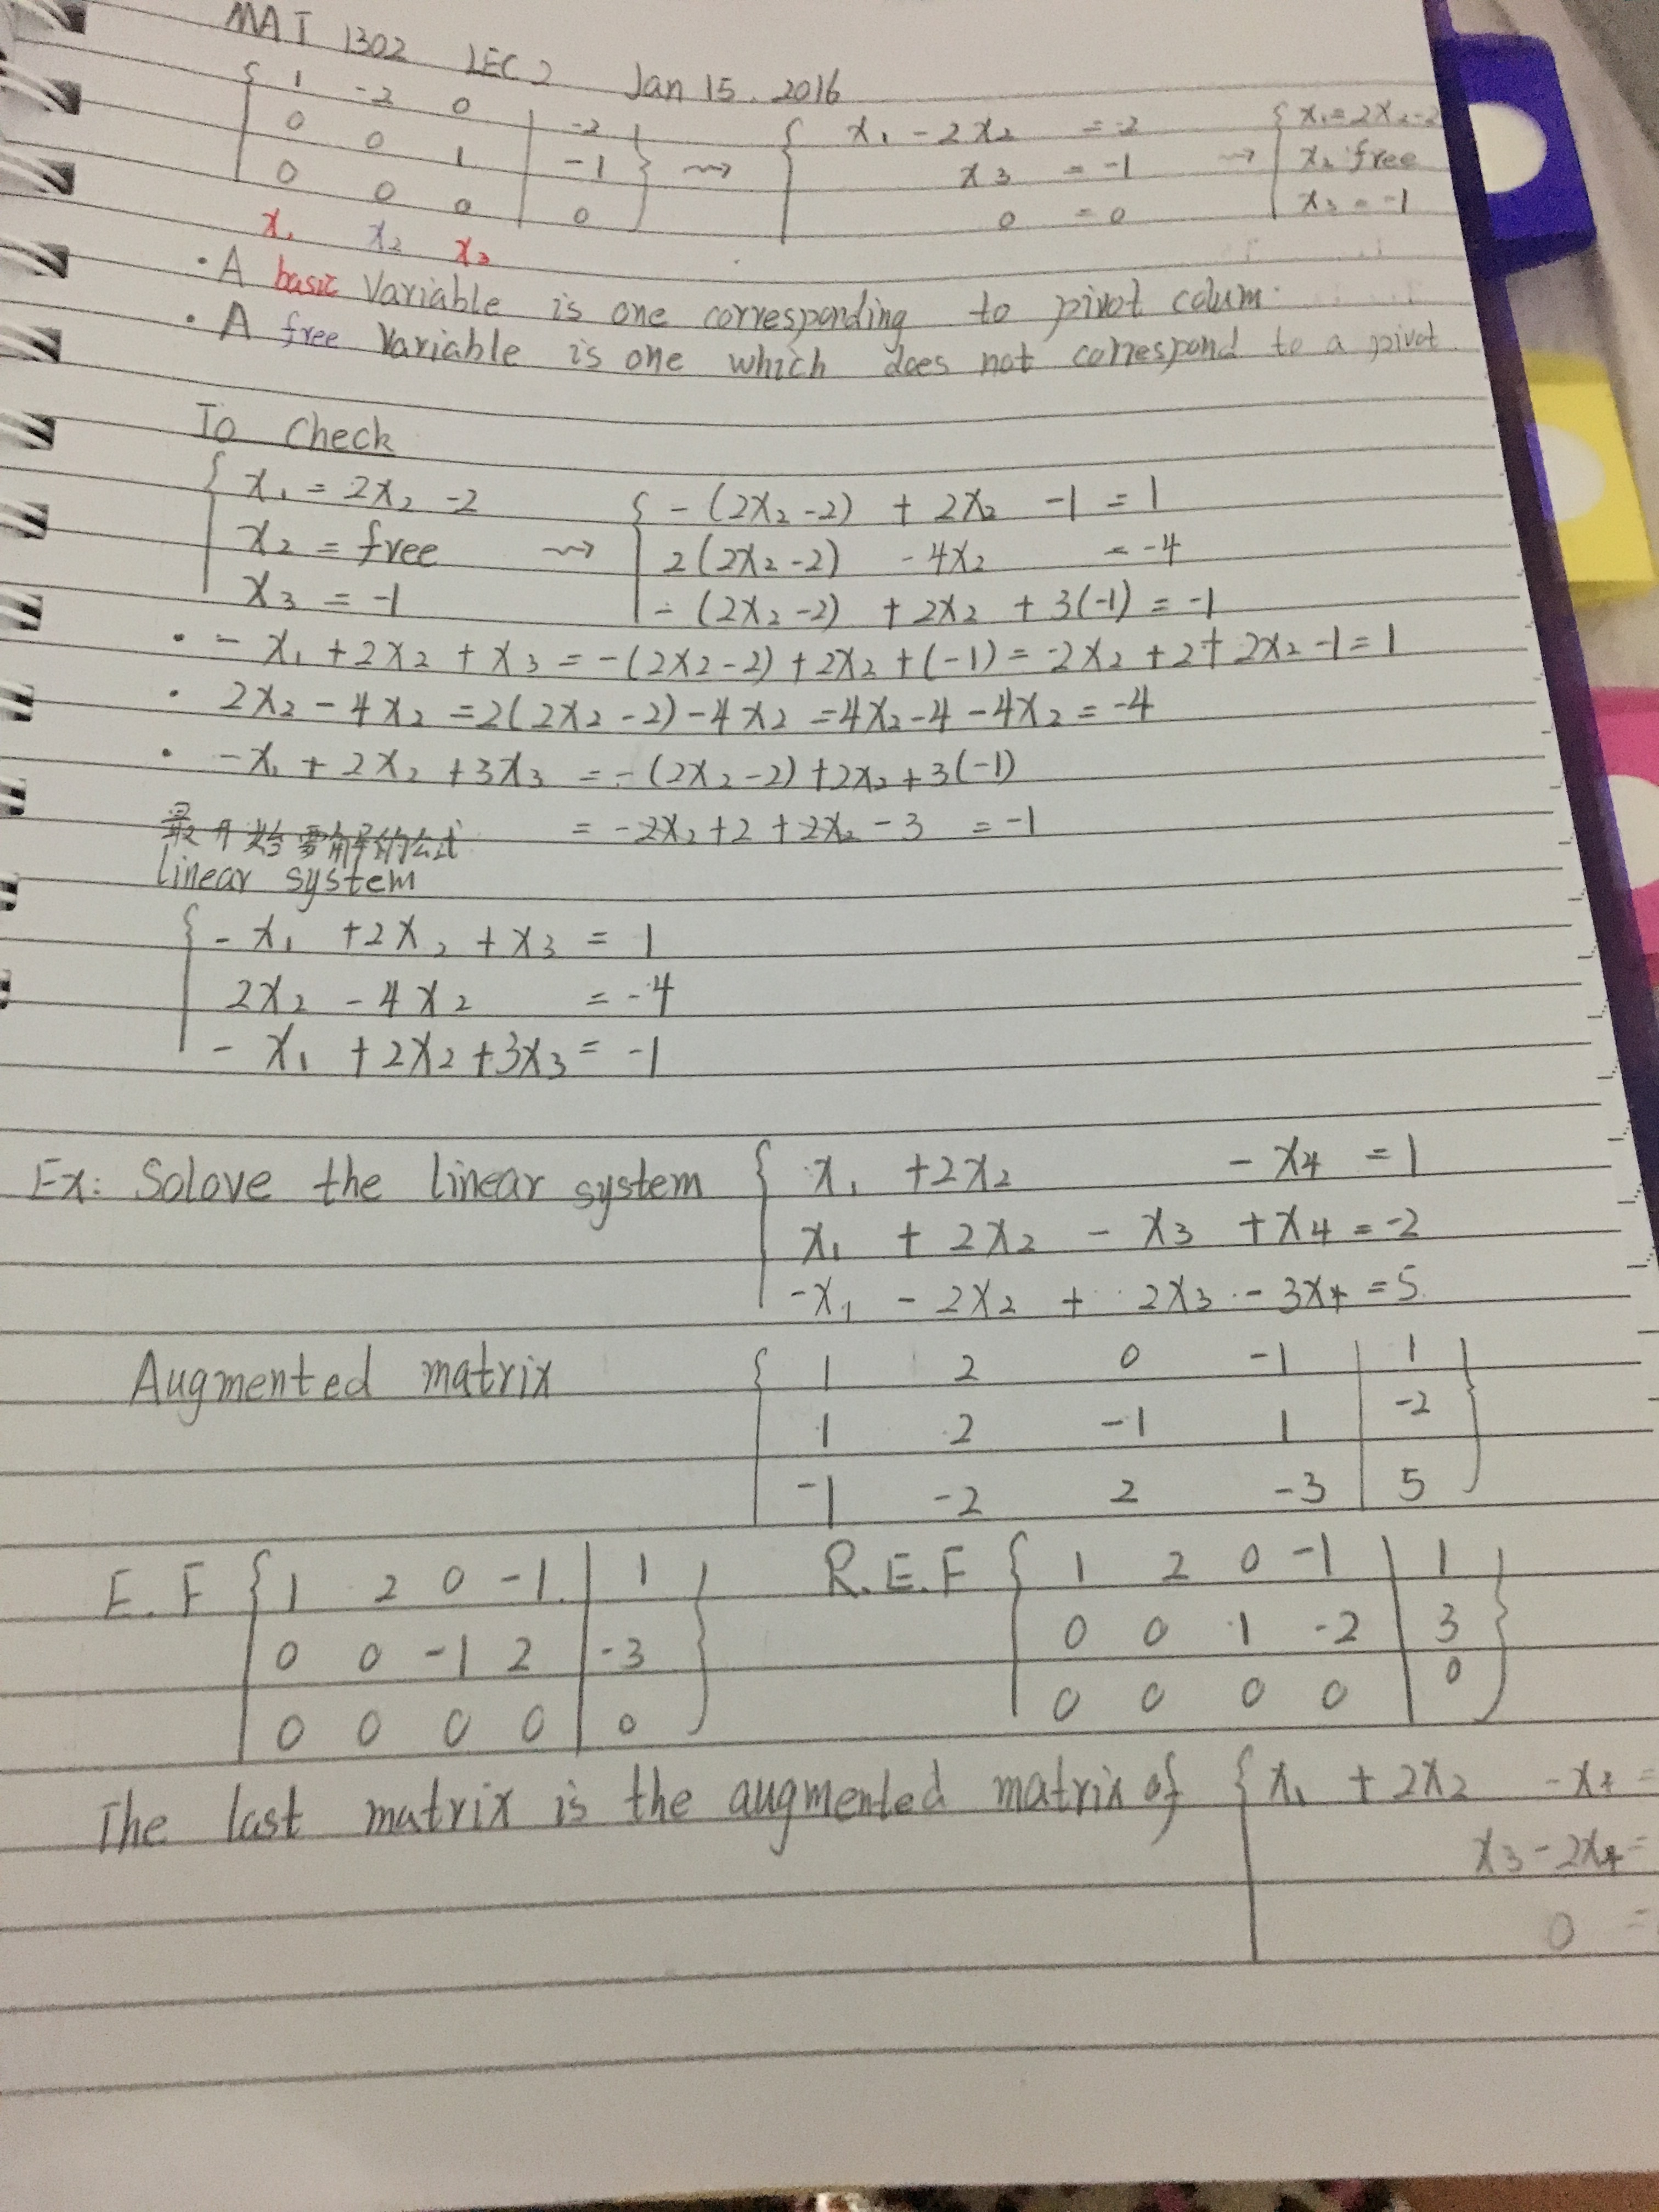 MAT 1302 LEC 2 Jan 15. 2016
{ 1 -2 0 | -2 } ⇝ { x₁ - 2x₂ = -2 ⇝ { x₁ = 2x₂ - 2
0 0 1 | -1 x₃ = -1 x₂ free
0 0 0 | 0 0 = 0 x₃ = -1
x₁ x₂ x₃
· A basic variable is one corresponding to pivot colum.
· A free variable is one which does not correspond to a pivot.
To check
{ x₁ = 2x₂ - 2 { - (2x₂ - 2) + 2x₂ - 1 = 1
x₂ = free ⇝ 2(2x₂ - 2) - 4x₂ = -4
x₃ = -1 - (2x₂ - 2) + 2x₂ + 3(-1) = -1
· - x₁ + 2x₂ + x₃ = -(2x₂ - 2) + 2x₂ + (-1) = -2x₂ + 2 + 2x₂ - 1 = 1
· 2x₂ - 4x₂ = 2(2x₂ - 2) - 4x₂ = 4x₂ - 4 - 4x₂ = -4
· -x₁ + 2x₂ + 3x₃ = -(2x₂ - 2) + 2x₂ + 3(-1)
最开始要解的公式 = -2x₂ + 2 + 2x₂ - 3 = -1
linear system
{ - x₁ + 2x₂ + x₃ = 1
2x₂ - 4x₂ = -4
- x₁ + 2x₂ + 3x₃ = -1
Ex: Solove the linear system { x₁ + 2x₂ - x₄ = 1
x₁ + 2x₂ - x₃ + x₄ = -2
-x₁ - 2x₂ + 2x₃ - 3x₄ = 5
Augmented matrix { 1 2 0 -1 | 1 }
1 2 -1 1 | -2
-1 -2 2 -3 | 5
E.F { 1 2 0 -1 | 1 } R.E.F { 1 2 0 -1 | 1 }
0 0 -1 2 | -3 0 0 1 -2 | 3
0 0 0 0 | 0 0 0 0 0 | 0
The last matrix is the augmented matrix of { x₁ + 2x₂ - x₄ =
x₃ - 2x₄ =
0 =